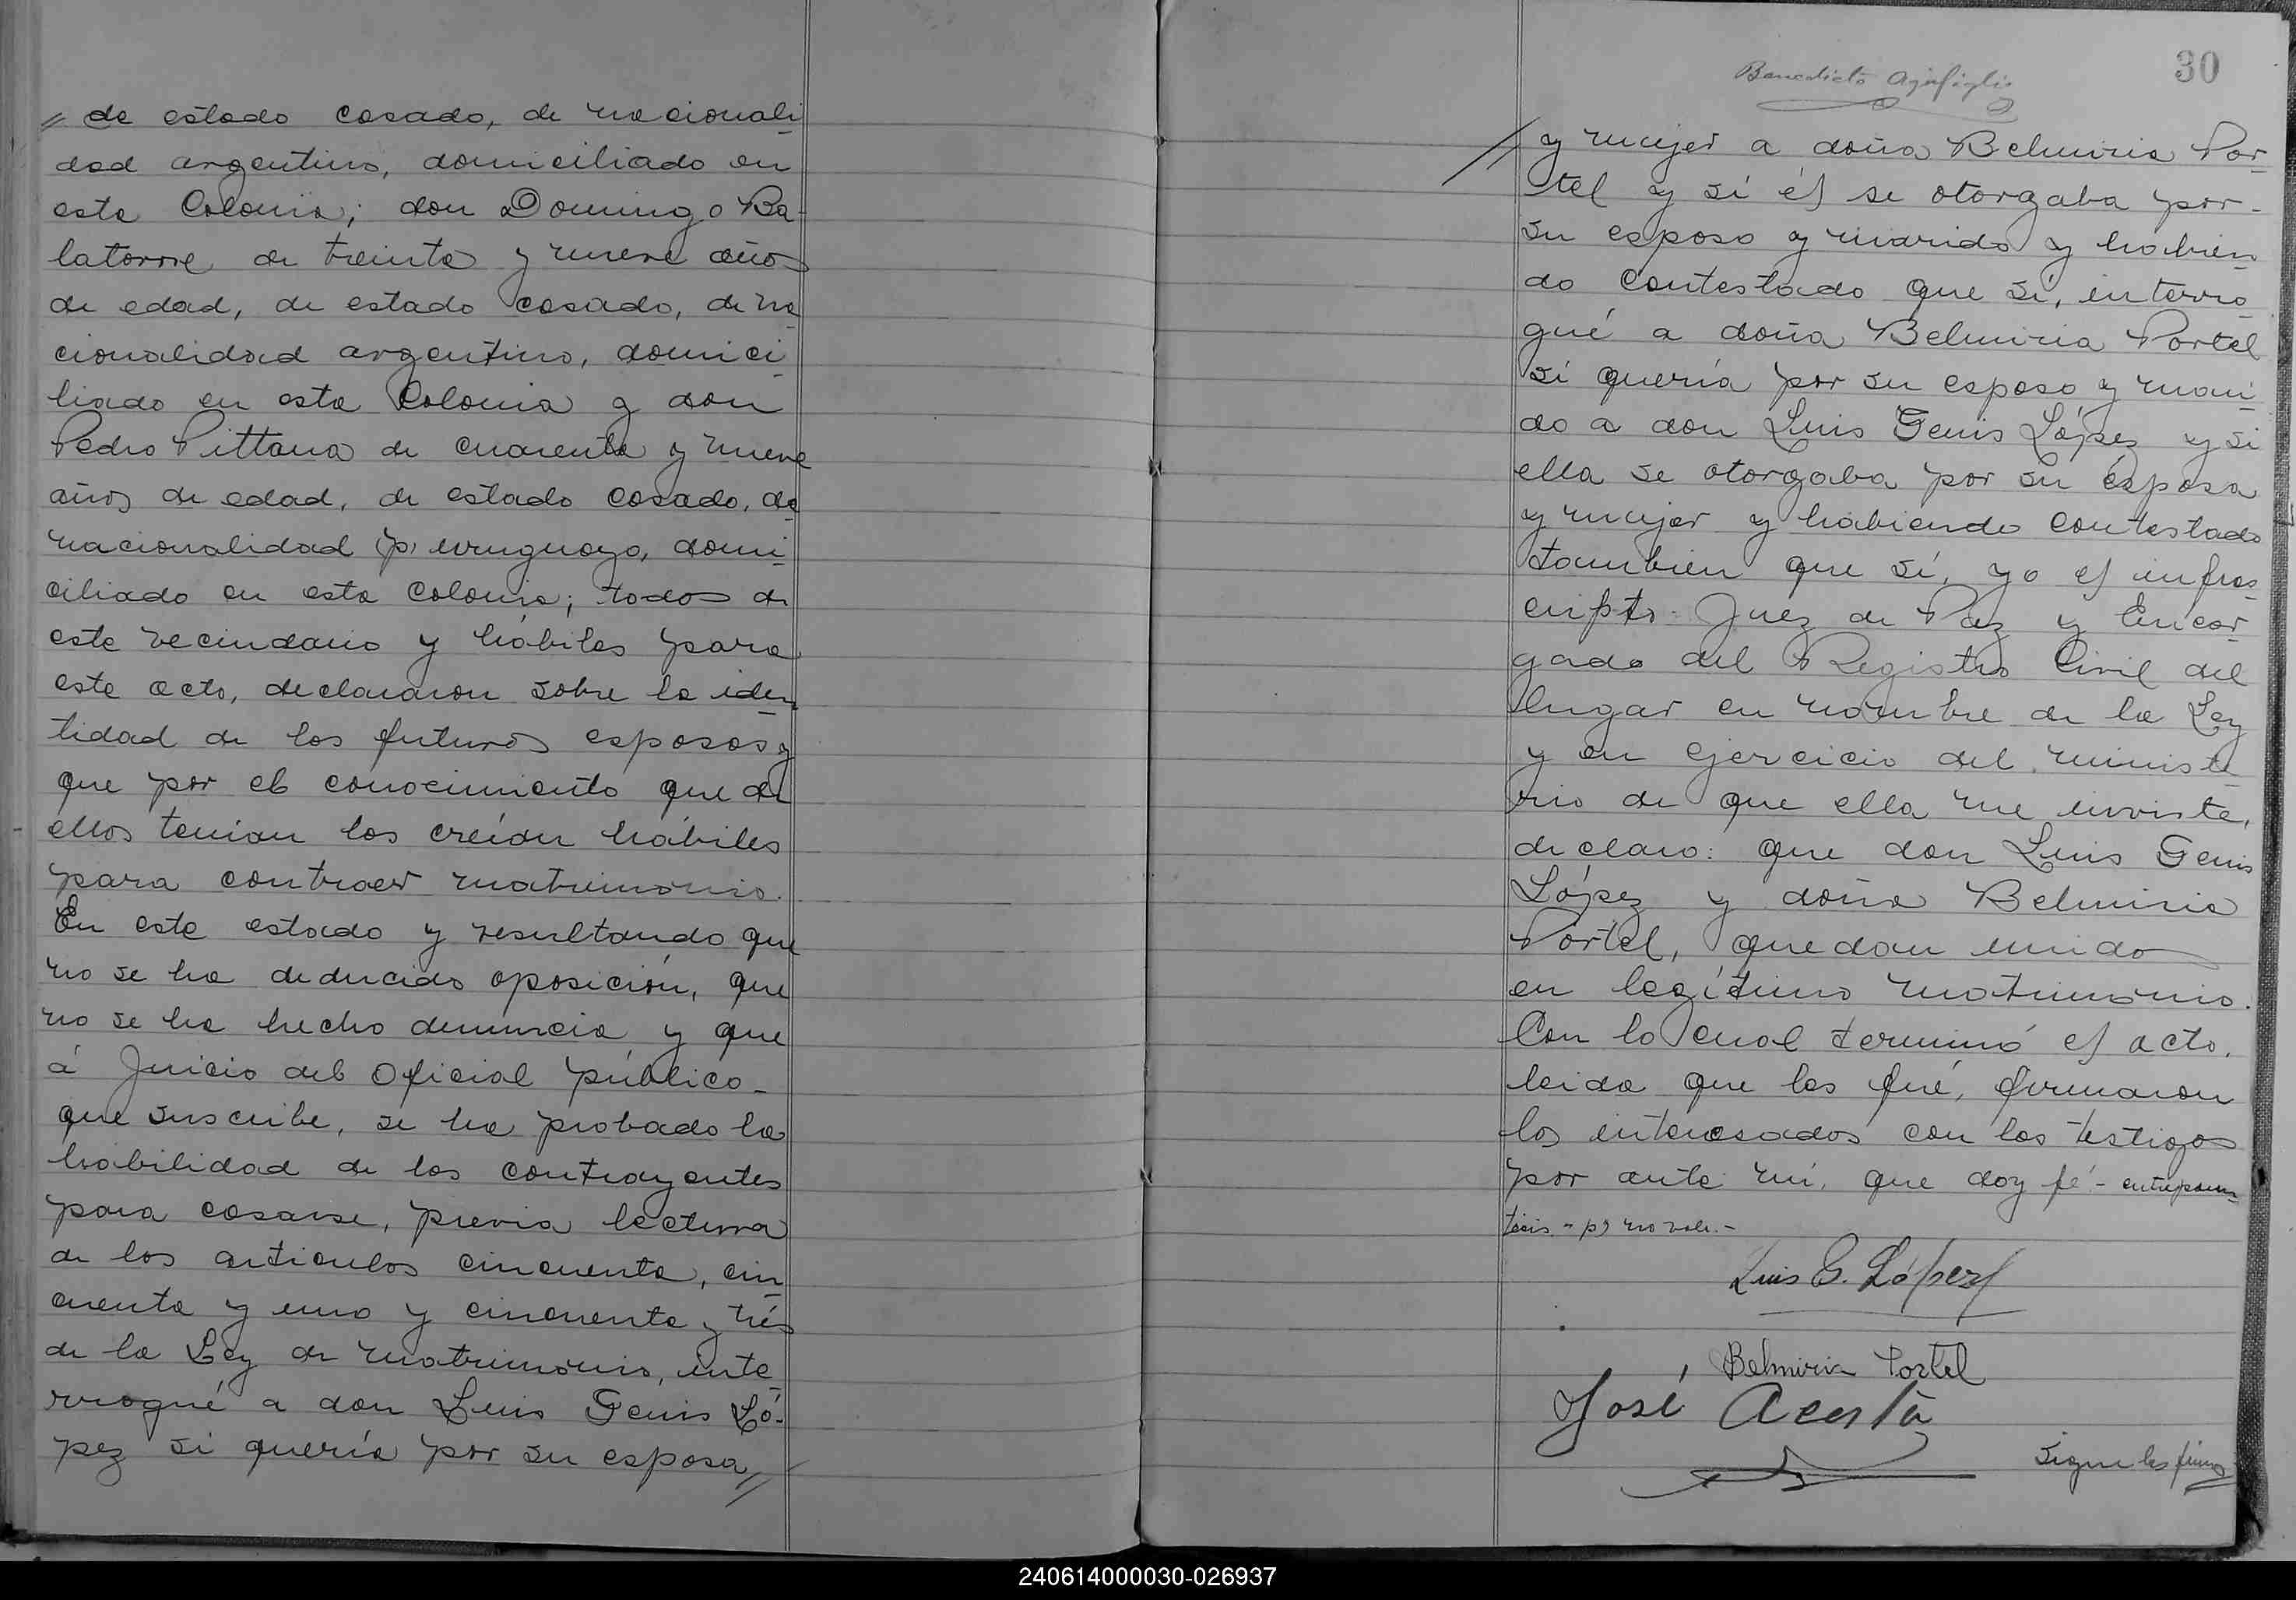 // de estado casado, de nacionali-
dad argentino, domiciliado en
esta Colonia; don Domingo Ba-
latorre de treinta y nueve años
de edad, de estado casado, de na-
cionalidad argentino, domici-
liado en esta Colonia y don
Pedro Pittana de cuarenta y nueve
años de edad, de estado casado, de
nacionalidad (p) uruguayo, domi-
ciliado en esta Colonia; todos de
este vecindario y hábiles para
este acto, declararon sobre la iden-
tidad de los futuros esposos y
que por el conocimiento que de
ellos tenian los creían hábiles
para contraer matrimonio.
En este estado y resultando que
no se ha deducido oposición, que
no se ha hecho denuncia y que
á Juicio del Oficial público-
que suscribe, se ha probado la
habilidad de los contrayentes
para casarse, previa lectura
de los articulos cincuenta, cin-
cuenta y uno y cincuenta y trés
de la Ley de matrimonio, inte-
rrogué a don Luis Genis Ló-
pez si quería por su esposa //
30
Benedicto
// y mujer a doña Belmiria Por-
tel y si él se otorgaba por-
su esposo y marido y habien-
do contestado que sí, interro-
gué a doña Belmiria Portel
si quería por su esposo y mari-
do a don Luis Genis López y si
ella se otorgaba por su esposa
y mujer y habiendo contestado
tambien que sí, yo el infras-
cripto Juez de Paz y Encar-
gado del Registro Civil del
lugar en nombre de la Ley
y en ejercicio del ministe-
rio de que ella me inviste,
declaro: que don Luis Genis
López y doña Belmiria
Portel, quedan unidos
en legítimo matrimonio.
Con lo cual terminó el acto,
leida que les fué, firmaron
los interesados con los testigos
por ante mí, que doy fé.- entreparen-
tesis - p) no vale.-
Luis G. López
Belmiria Portel
José Acosta
Sigue las firmas
240614000030-026937